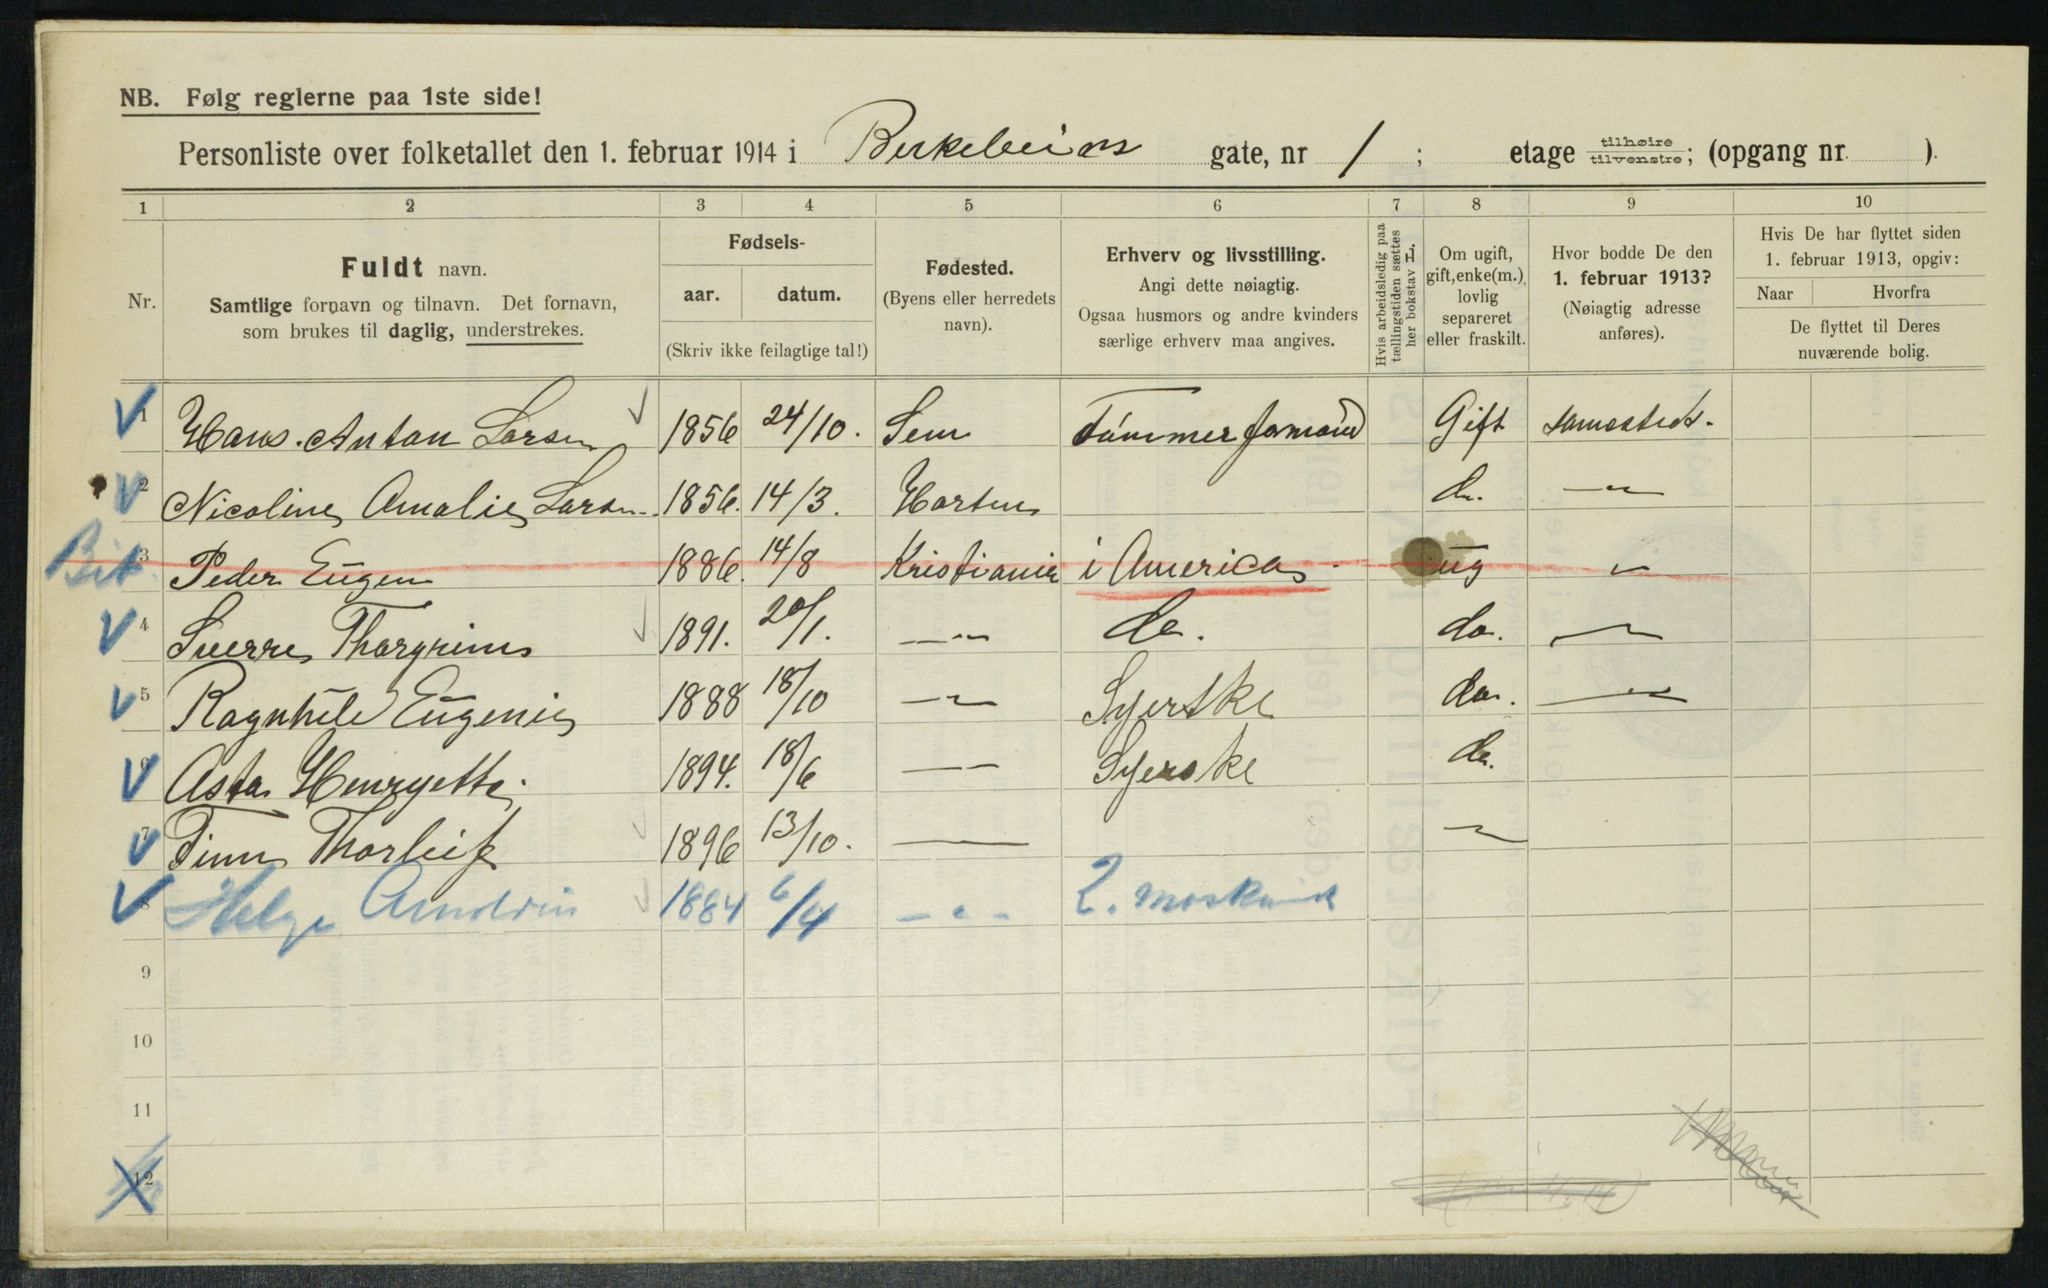 NB. Følg reglerne paa 1ste side!
Personliste over folketallet den 1. februar 1914 i Birkebeiners gate, nr 1 ; etage tilhøire tilvenstre; (opgang nr. ).
1 2 3 4 5 6 7 8 9 10
Nr.
Fuldt navn.
Samtlige fornavn og tilnavn. Det fornavn,
som brukes til daglig, understrekes.
Fødsels-
aar. datum.
(Skriv ikke feilagtige tal!)
Fødested.
(Byens eller herredets
navn).
Erhverv og livsstilling.
Angi dette nøiagtig.
Ogsaa husmors og andre kvinders
særlige erhverv maa angives.
Hvis arbeidsledig paa
tællingstiden sættes
her bokstav L.
Om ugift,
gift, enke(m.),
lovlig
separeret
eller fraskilt.
Hvor bodde De den
1. februar 1913?
(Nøiagtig adresse
anføres).
Hvis De har flyttet siden
1. februar 1913, opgiv:
Naar Hvorfra
De flyttet til Deres
nuværende bolig.
1 Hans. Anton Larsen 1856 24/10. Sem Tømmerformand Gift samasteds.
2 Nicoline Amalie Larsen 1856. 14/3. Horten do. —"—
3 Peder Eugen 1886. 14/8 Kristiania i America ug —"—
4 Sverre Thorgrim 1891. 20/1. —"— do. do. —"—
5 Ragnhild Eugenie 1888 18/10 —"— Syerske do. —"—
6 Asta Henryette 1894. 18/6 —"— Syerske do.
7 Finn Thorleif 1896 13/10. —"— —"—
8 Helge 1884 6/4 —"— 2. maskinist
9
10
11
12